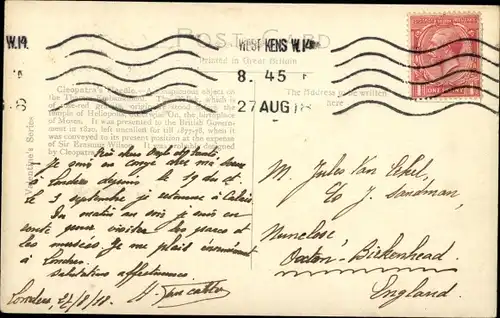 POST CARD
Printed in Great Britain
WEST KENS. W.14
8. 45
27 AUG 18
ONE PENNY
The Address to be written
here
Valentine's Series
Cleopatra's Needle.—A conspicuous object on
the Thames Embankment. The Obelisk, which is
of red granite,
temple of Heliopolis, or On, the birthplace
of Moses. It was presented to the British Govern-
ment in 1820, left uncalled for till 1877-78, when it
was conveyed to its present position at the expense
of Sir Erasmus Wilson. It was probably designed
by Cleopatra
Je suis en congé chez ma
à Londres depuis le 19 du ct.
le 3 septembre je retourne à Calais
Du matin au soir je suis en
route pour visiter les parcs et
les musées. Je me plais énormément
à Londres.
Salutations affectueuses.
Londres, 27/8/18.
M. Jules Van
c/o J. Sandman,
Oxton-Birkenhead.
England.